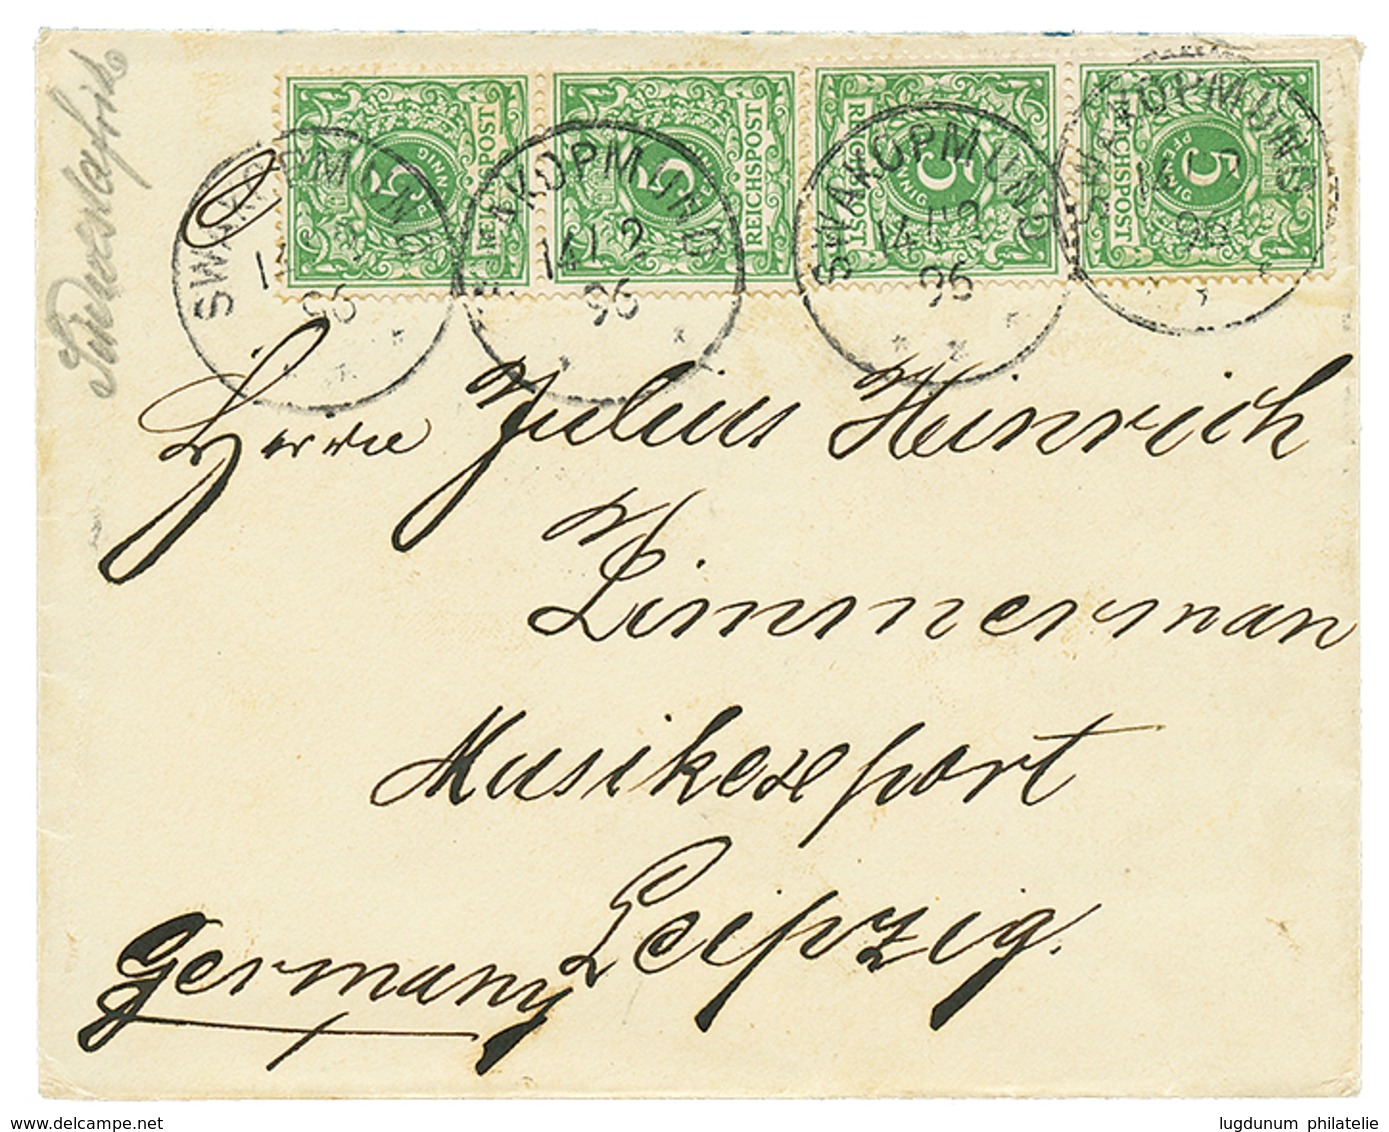 Südwestafrika
SWAKOPMUND
14 12
96
SWAKOPMUND
14 12
96
SWAKOPMUND
14 12
96
SWAKOPMUND
14 12
96
5
PFENNIG
REICHSPOST
5
PFENNIG
REICHSPOST
5
PFENNIG
REICHSPOST
5
PFENNIG
REICHSPOST
Herrn Julius Heinrich
Zimmerman
Musikexport
Leipzig.
Germany
lugdunum philatelie